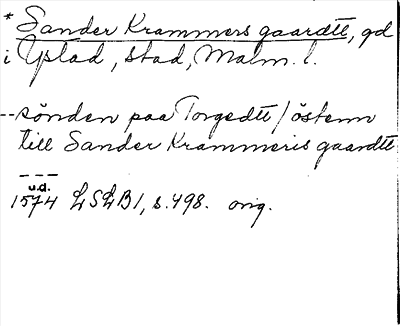 * Sander Krammers gaardtt, gd
i Ystad, stad, Malm. l.
-- sönden paa Torgedtt / östenn
till Sander Krammeris gaardtt
---
u.d.
1574 LSLB1, s. 498. orig.